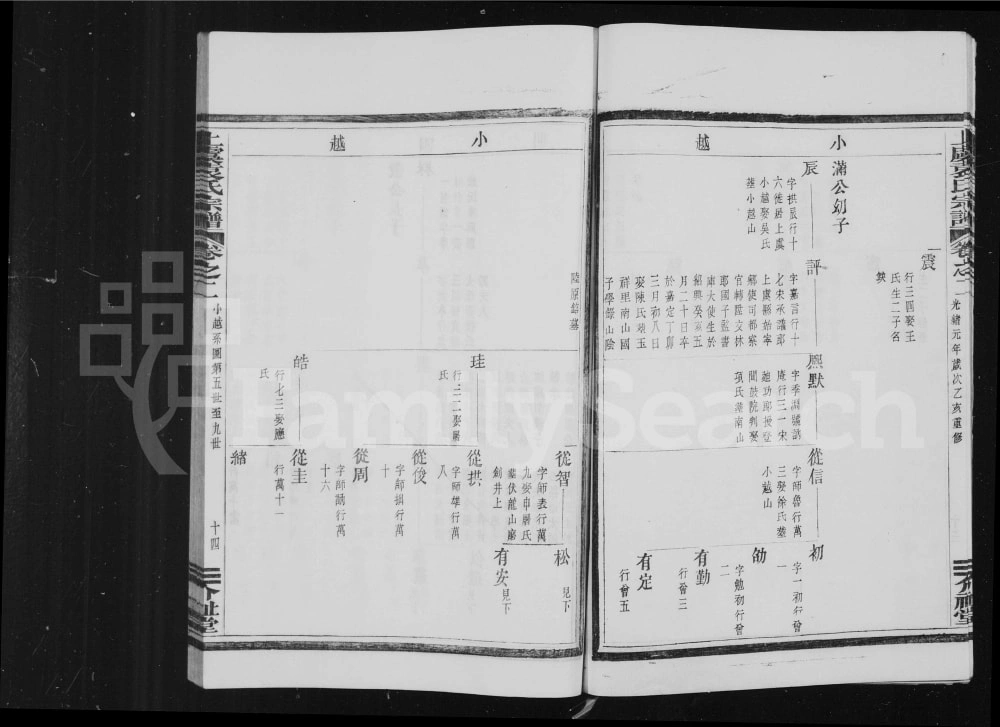 小越
一震
行三四娶王
氏生二子名
缺
滿公幼子
辰
字拱辰行十
六徙居上虞
小越娶吳氏
葬小越山
評
字嘉言行十
七宋承議郎
上虞縣
官轉
郎國子監書
庫大使生於
紹興癸丑五
月二十日卒
於嘉定丁卯
三月初八日
娶陳氏
祥里南山國
子學錄山陰
陸原銘墓
熙默
字季淵
庵行三一宋
迪功郎授登
聞鼓院判娶
項氏葬南山
從信
字師魯行萬
三娶徐氏葬
小越山
初
字一初行曾
一
劬
字勉初行曾
二
有勤
行曾三
有定
行曾五
光緒元年歲次乙亥重修
卷之二
小越
珪
行三二娶屠
氏
皓
行七三娶應
氏
從智
字師表行萬
九娶申屠氏
葬伏龍山磨
劍井上
從拱
字師雄行萬
八
從俊
字師損行萬
十
從周
字師勛行萬
十六
從圭
行萬十一
緒
松
見下
有安
見下
氏宗譜
卷之二
小越系圖第五世至九世
十四
介祉堂
FamilySearch